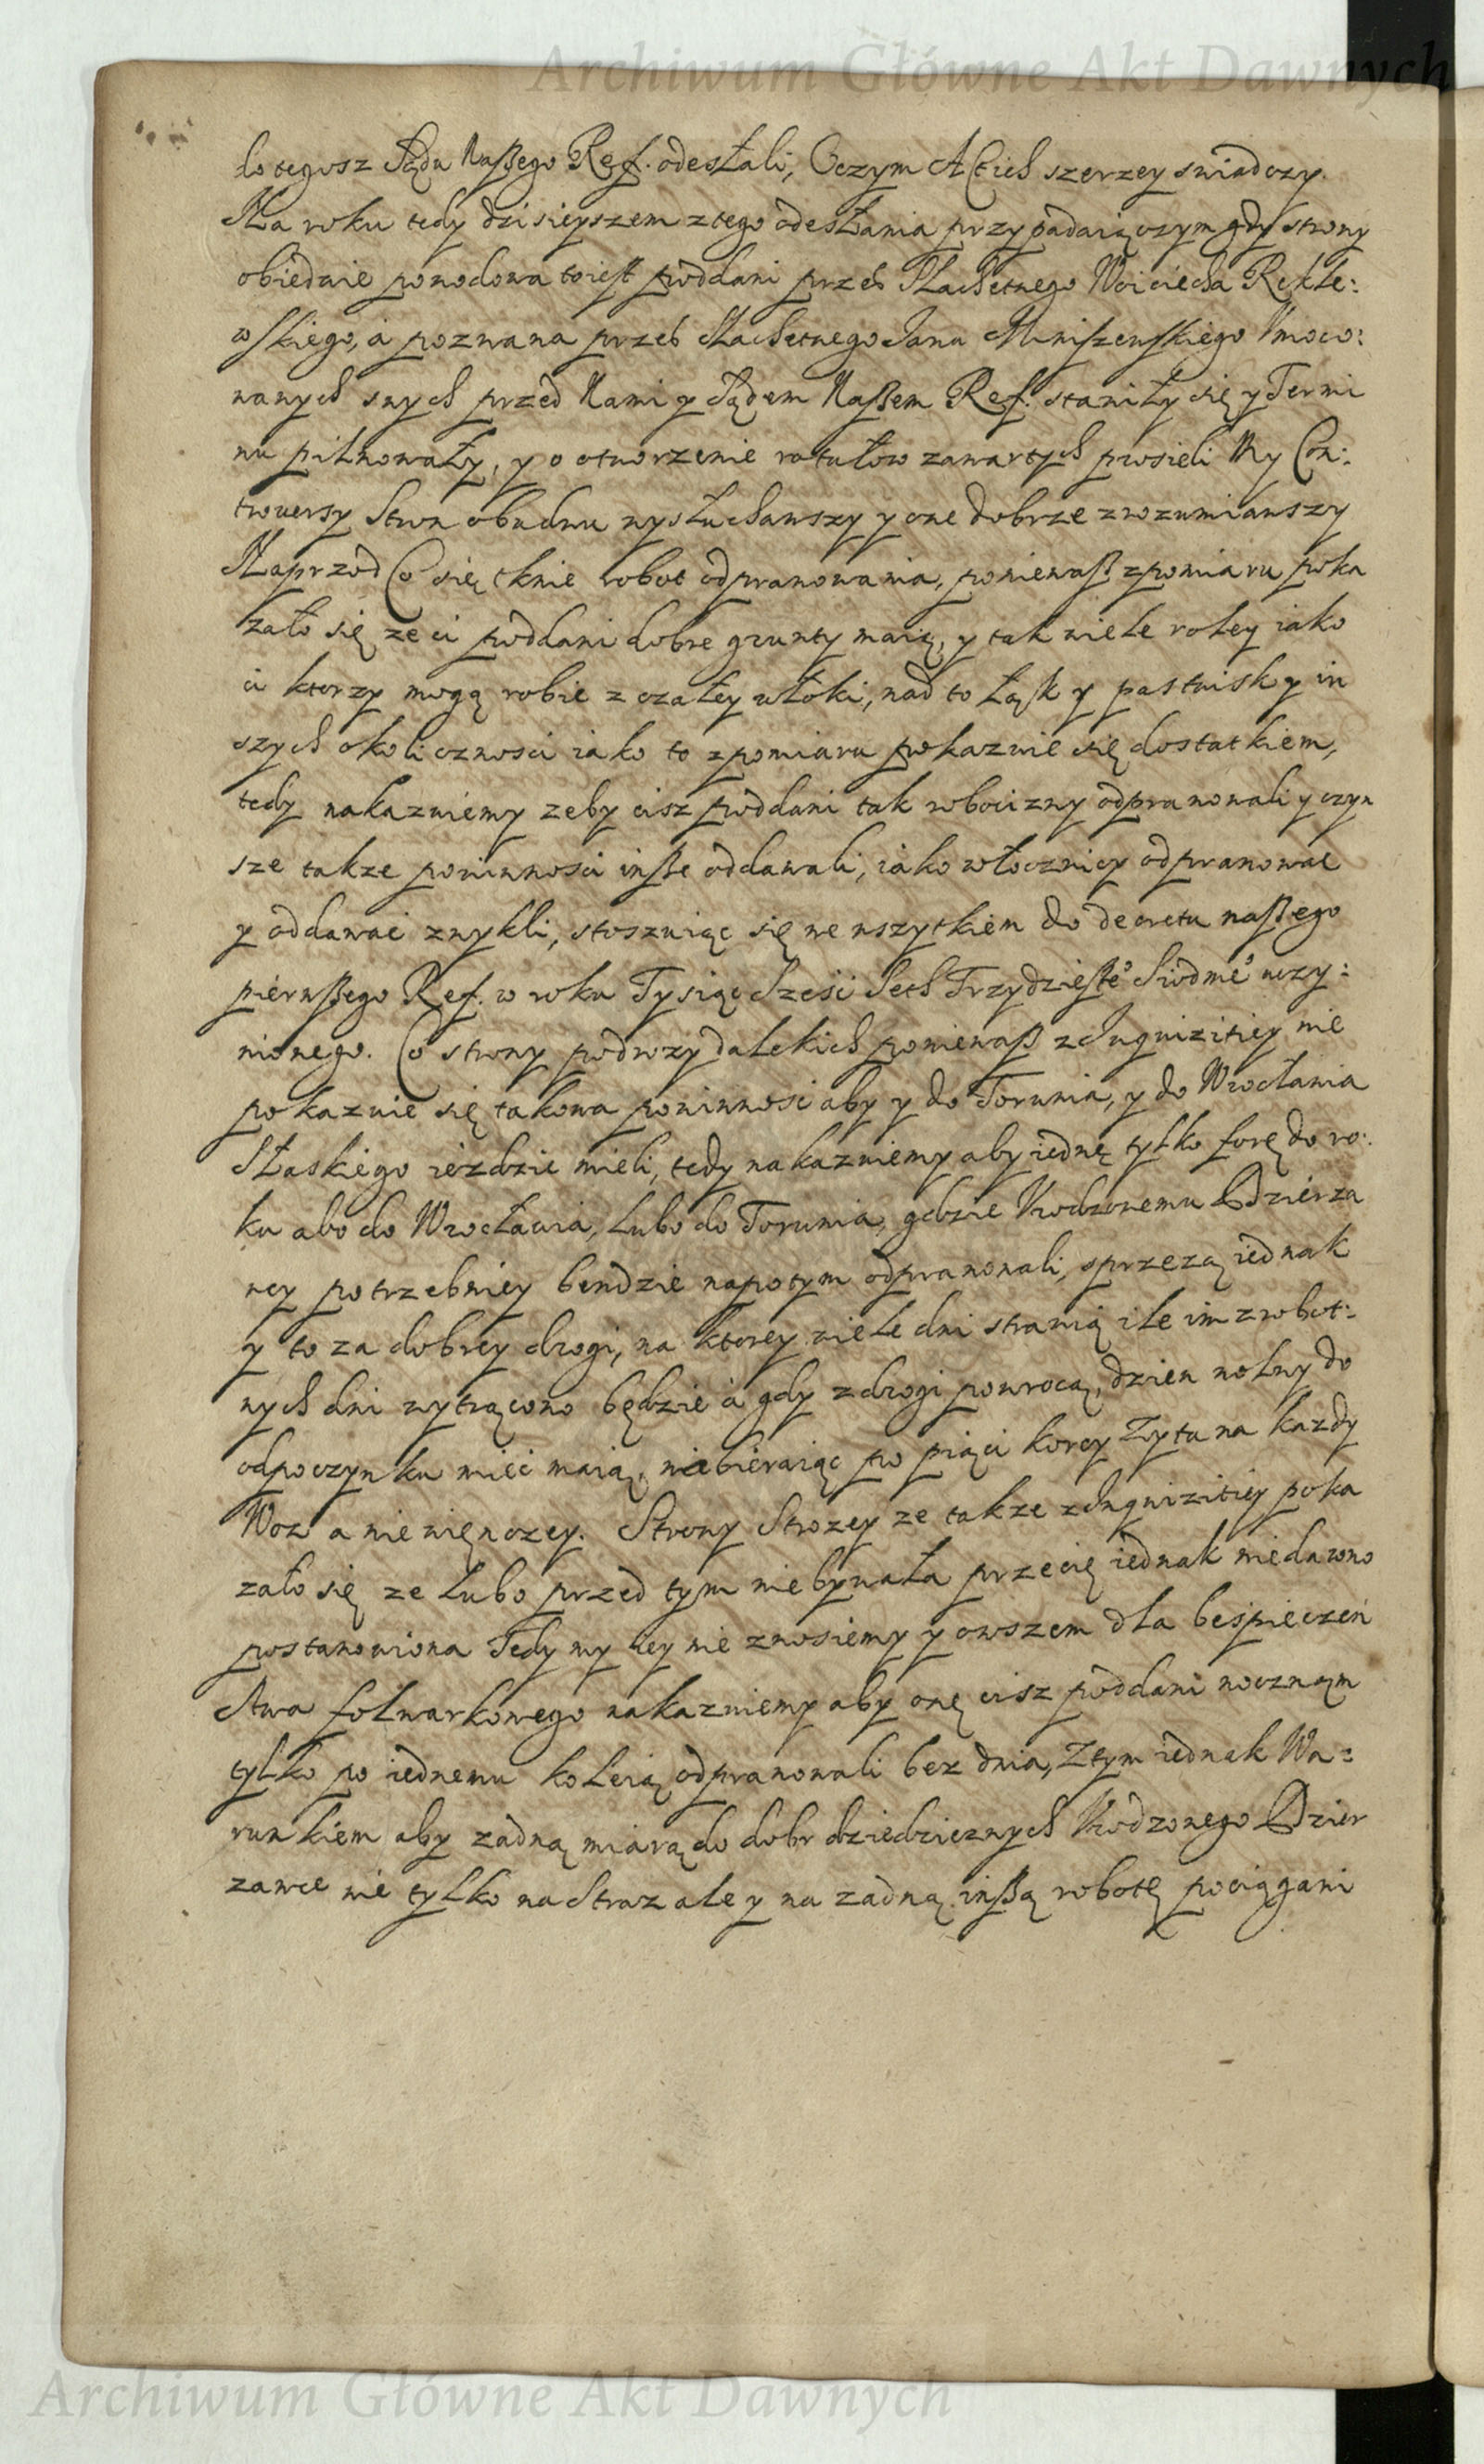 Archiwum Główne Akt Dawnych
do tegosz Sądu Naszego Ref. odesłali, Oczym Act ich szerzey swiadczy.
Na roku tedy dzisieyszem z tego odesłania przypadaiączym gdy strony
obiedwie powodowa toiest poddani przez Slachetnego Woiciecha Rekle:
wskiego, a pozwana przez Slachetnego Jana Miniszewskiego Vmoco:
wanych swych przed Nami y Sądem Naszem Ref. stawiły się y Termi
nu pilnowały, y o otworzenie rotułow zawartych prosieli My Con:
trouersy Stron obudwu wysłuchawszy y one dobrze zrozumiawszy
Naprzod Co się tknie robot odprawowania, poniewasz z pomiaru poka
zało się ze ci poddani dobre grunty maią, y tak wiele roley iako
ci ktorzy mogą robic z czałey włoki, nad to Łąk y pastwisk y in
szych okolicznosci iako to z pomiaru pokazuie się dostatkiem,
tedy nakazuiemy zeby cisz poddani tak robocizny odprawowali y czyn
sze takze powinnosci insze oddawali, iako włocznicy odprawowac
y oddawac zwykli, stosuiąc się we wszytkiem do decretu naszego
pierwszego Ref. w roku Tysiąc Szesc Seth Trzydzieste° Siodme° uczy:
nionego. Co strony podrozy dalekich poniewasz z Inquizitiey nie
pokazuie się takowa powinnosc aby y do Torunia, y do Wrocławia
Sląskiego iezdzic mieli, tedy nakazuiemy aby iednę tylko forę do ro:
ku abo do Wrocławia, lubo do Torunia, gdzie Vrodzonemu Dzierza
wcy potrzebniey bendzie napotym odprawowali, sprzezą iednak
y to za dobrey drogi, na ktorey wiele dni strawią ile im z robot:
nych dni wytrącono będzie a gdy z drogi powrocą, dzien wolny do
odpoczynku miec maią, niebieraiąc po piąci korcy Zyta na kazdy
Woz a nie więnczey. Strony Strozey ze takze z Inquizitiey poka
zało się ze lubo przed tym niebywała przecię iednak niedawno
postanowiona Tedy my iey nie znosiemy y owszem dla bespieczen
stwa folwarkowego nakazuiemy aby onę cisz poddani nocznąm
tylko po iednemu koleią odprawowali bez dnia, Z tym iednak Wa:
runkiem aby zadną miarą do dobr dziedzicznych Vrodzonego Dzier
zawce nie tylko na Straz ale y na zadną inszą robotę pociągani
Archiwum Główne Akt Dawnych